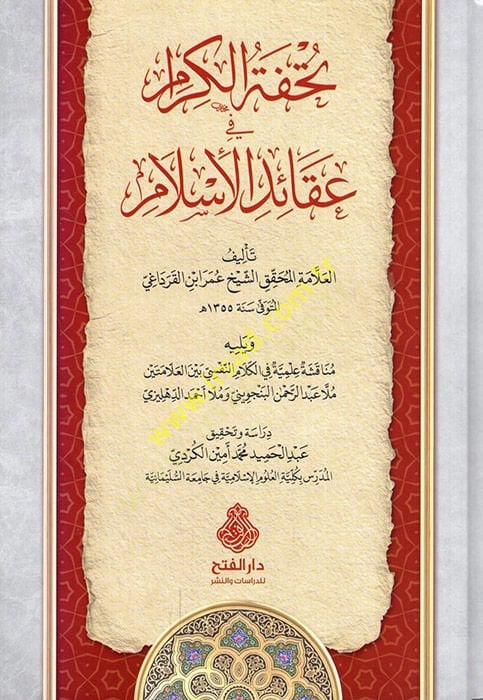 تُحْفَةُ الْكِرَامِ
فِي
عَقَائِدِ الْإِسْلَامِ
تَأْلِيفُ
العَلَّامَةِ المُحَقِّقِ الشَّيْخِ عُمَرَ ابْنِ القَرَدَاغِيِّ
المُتَوَفَّى سَنَة ١٣٥٥هـ
وَيَلِيهِ
مُنَاقَشَةٌ عِلْمِيَّةٌ فِي الكَلَامِ النَّفْسِيِّ بَيْنَ العَلَّامَتَيْنِ
مُلَّا عَبْدِ الرَّحْمٰنِ البَنْجُوِينِيِّ وَمُلَّا أَحْمَدَ الدِّهْلِيزِيِّ
دِرَاسَة وَتَحْقِيق
عَبْدِ الحَمِيدِ مُحَمَّد أَمِين الكُرْدِيّ
المُدَرِّسِ بِكُلِّيَّةِ العُلُومِ الإِسْلَامِيَّةِ فِي جَامِعَةِ السُّلَيْمَانِيَّةِ
دار الفتح
للدراسات والنشر